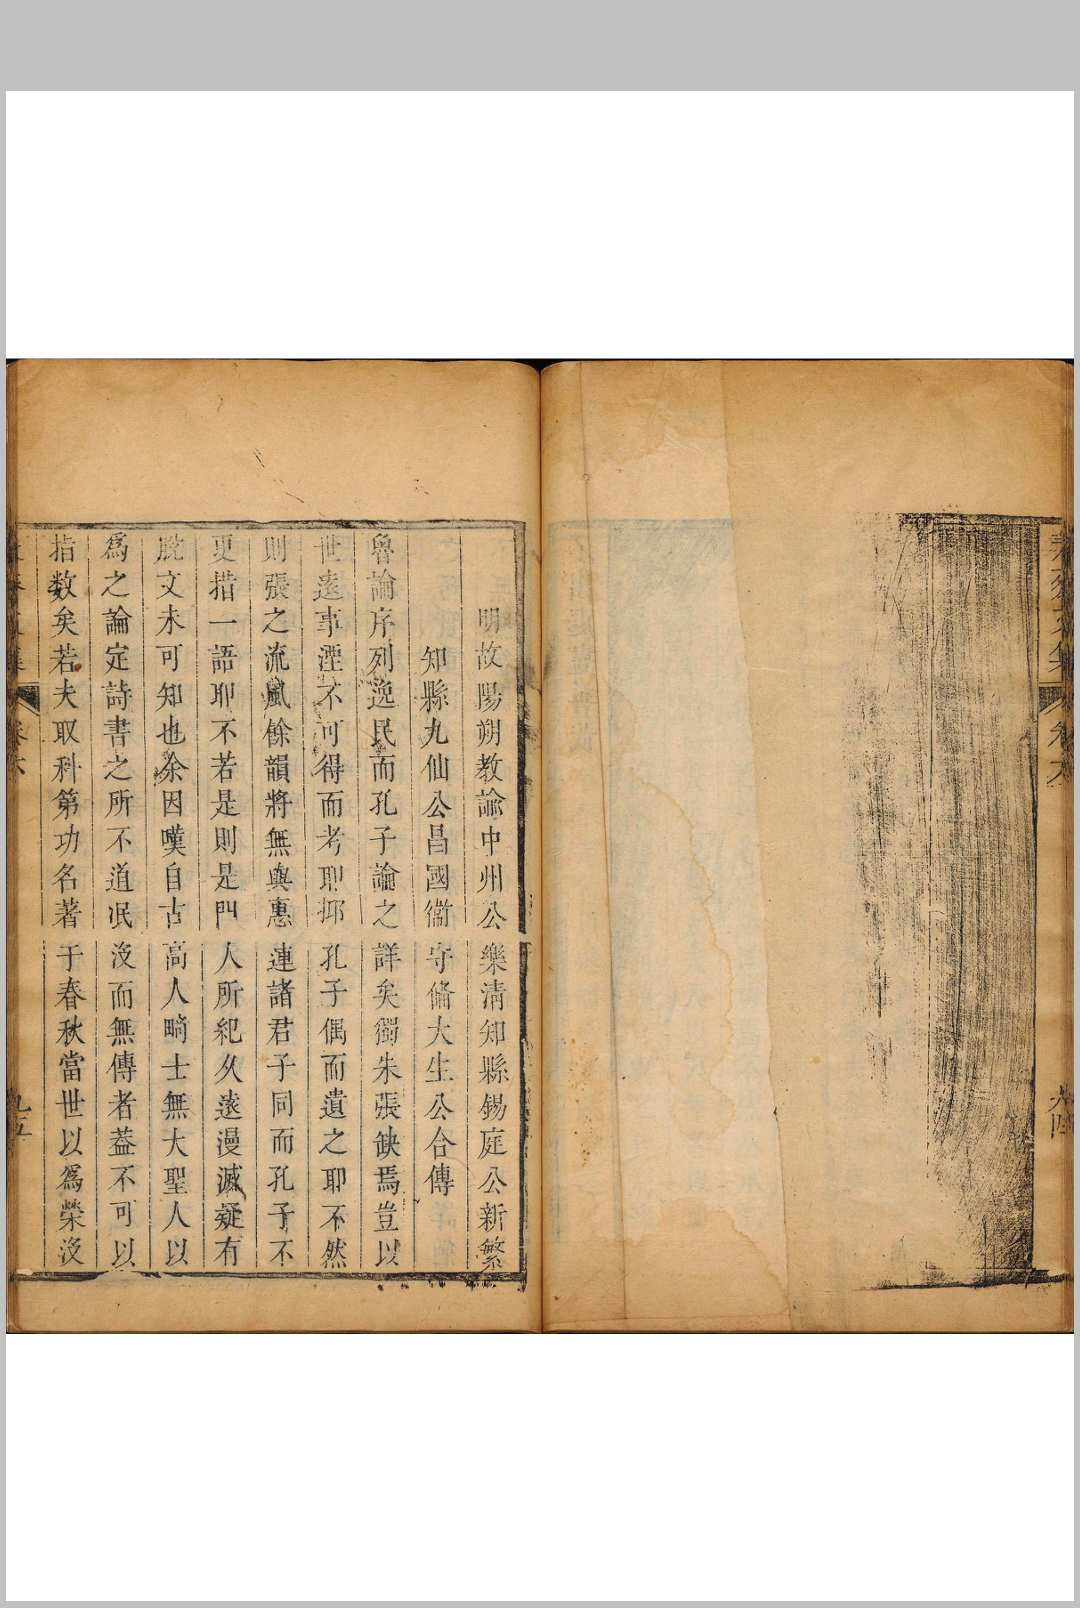 卷六
明故陽朔教諭中州公樂清知縣錫庭公新繁
知縣九仙公昌國衞守俻大生公合傳
魯論序列逸民而孔子論之詳矣獨朱張缺焉豈以
世遠事湮不可得而考耶抑孔子偶而遺之耶不然
則張之流風餘韻將無與惠連諸君子同而孔子不
更措一語耶不若是則是門人所紀久遠漫滅疑有
脫文未可知也余因嘆自古高人畸士無大聖人以
爲之論定詩書之所不道泯没而無傳者葢不可以
指数矣若夫取科第功名著于春秋當世以爲榮没
卷六
九五